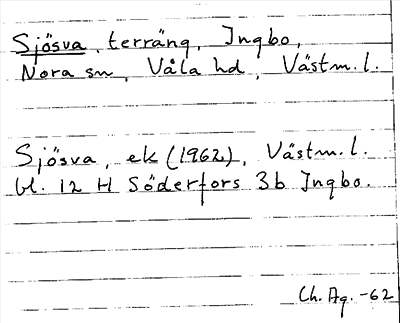 Sjösva, terräng, Ingbo,
Nora sn, Våla hd, Västm.l.
Sjösva, ek (1962), Västm.l.
bl. 12 H Söderfors 3b Ingbo.
Ch. Ag. -62